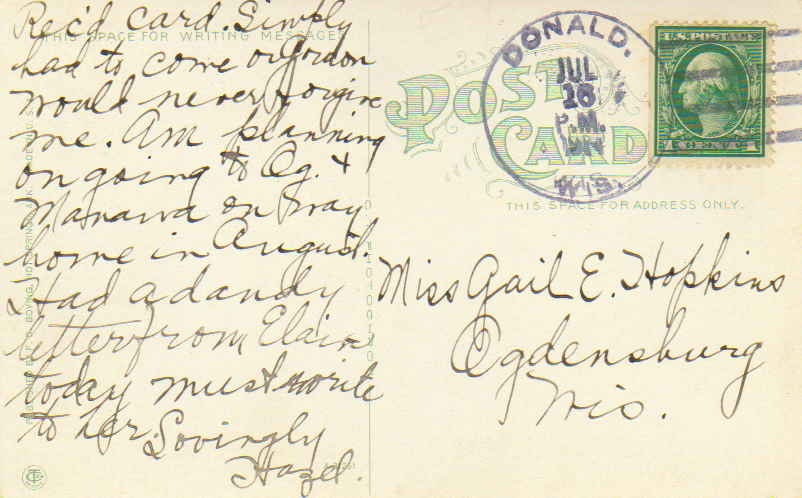 Rec'd card. Simply
had to come or Gordon
would never forgive
me. Am planning
on going to Og. &
Manawa on way
home in August.
Had a dandy
letter from Elain
today must write
to her. Lovingly
Hazel.
THIS SPACE FOR WRITING MESSAGES
POST CARD
THIS SPACE FOR ADDRESS ONLY.
DONALD,
JUL
P.M.
WIS.
U.S. POSTAGE
1 CENT 1
Miss Gail E. Hopkins
Ogdensburg
Wis.